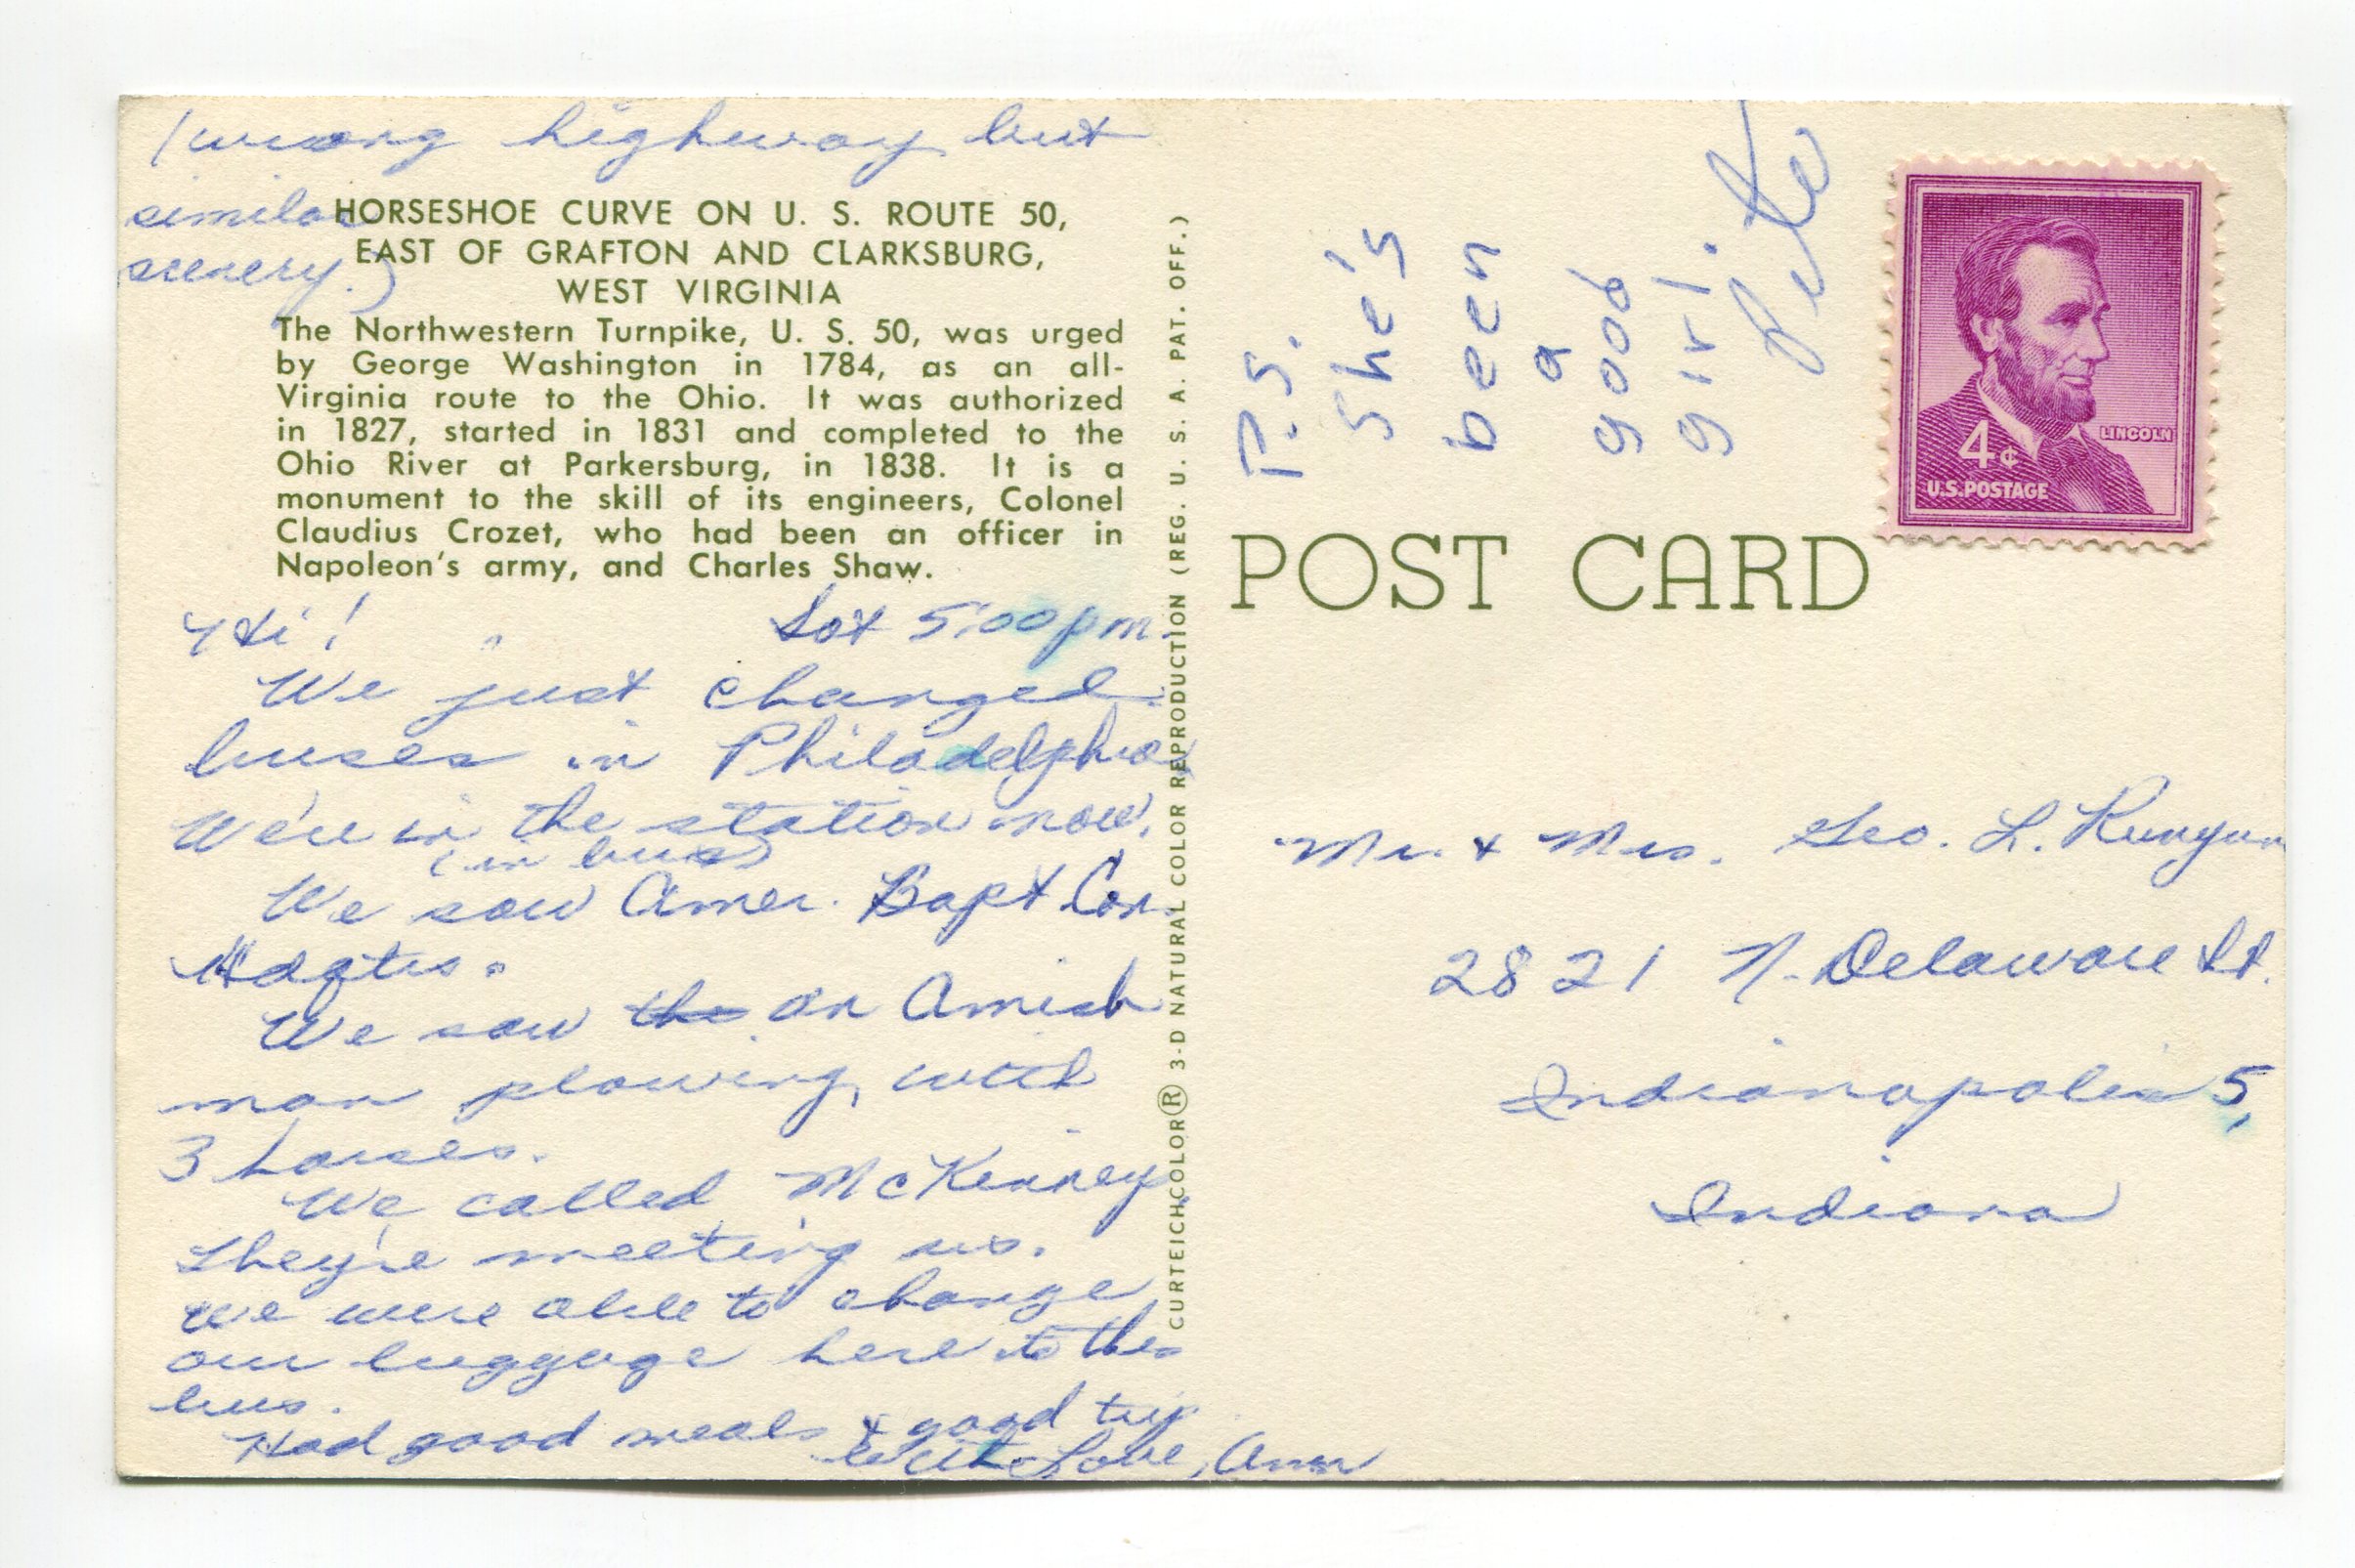 (wrong highway but
similar
scenery.)
HORSESHOE CURVE ON U. S. ROUTE 50,
EAST OF GRAFTON AND CLARKSBURG,
WEST VIRGINIA
The Northwestern Turnpike, U. S. 50, was urged
by George Washington in 1784, as an all-
Virginia route to the Ohio. It was authorized
in 1827, started in 1831 and completed to the
Ohio River at Parkersburg, in 1838. It is a
monument to the skill of its engineers, Colonel
Claudius Crozet, who had been an officer in
Napoleon's army, and Charles Shaw.
Hi! Sat 5:00 pm.
We just changed
buses in Philadelphia
We're in the station now.
(in bus)
We saw Amer. Bapt Con.
Hdqtrs.
We saw the an Amish
man plowing with
3 horses.
We called McKenney.
They're meeting us.
We were able to change
our luggage here to the
bus.
Had good meals & good trip.
With Love, Ann
CURTEICHCOLOR® 3-D NATURAL COLOR REPRODUCTION (REG. U. S. A. PAT. OFF.)
P.S.
She's
been
a
good
girl.
Pete
LINCOLN
4¢
U.S. POSTAGE
POST CARD
Mr. & Mrs. Geo. L. Runyan
2821 N. Delaware St.
Indianapolis 5,
Indiana